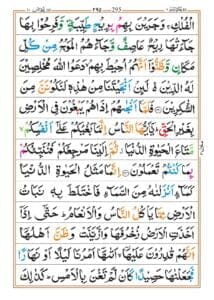 ٢٩٥ 295
الْفُلْكِ ۚ وَجَرَيْنَ بِهِمْ بِرِيْحٍ طَيِّبَةٍ وَّفَرِحُوْا بِهَا
جَآءَتْهَا رِيْحٌ عَاصِفٌ وَّجَآءَهُمُ الْمَوْجُ مِنْ كُلِّ
مَكَانٍ وَّظَنُّوْۤا اَنَّهُمْ اُحِيْطَ بِهِمْ ۙ دَعَوُا اللّٰهَ مُخْلِصِيْنَ
لَهُ الدِّيْنَ ۚ لَئِنْ اَنْجَيْتَنَا مِنْ هٰذِهٖ لَنَكُوْنَنَّ مِنَ
الشّٰكِرِيْنَ فَلَمَّاۤ اَنْجٰىهُمْ اِذَا هُمْ يَبْغُوْنَ فِى الْاَرْضِ
بِغَيْرِ الْحَقِّ ؕ يٰۤاَيُّهَا النَّاسُ اِنَّمَا بَغْيُكُمْ عَلٰۤى اَنْفُسِكُمْ
مَّتَاعَ الْحَيٰوةِ الدُّنْيَا ثُمَّ اِلَيْنَا مَرْجِعُكُمْ فَنُنَبِّئُكُمْ
بِمَا كُنْتُمْ تَعْمَلُوْنَ اِنَّمَا مَثَلُ الْحَيٰوةِ الدُّنْيَا
كَمَآءٍ اَنْزَلْنٰهُ مِنَ السَّمَآءِ فَاخْتَلَطَ بِهٖ نَبَاتُ
الْاَرْضِ مِمَّا يَاْكُلُ النَّاسُ وَالْاَنْعَامُ حَتّٰۤى اِذَاۤ
اَخَذَتِ الْاَرْضُ زُخْرُفَهَا وَازَّيَّنَتْ وَظَنَّ اَهْلُهَاۤ
اَنَّهُمْ قٰدِرُوْنَ عَلَيْهَاۤ اَتٰىهَاۤ اَمْرُنَا لَيْلًا اَوْ نَهَارًا
فَجَعَلْنٰهَا حَصِيْدًا كَاَنْ لَّمْ تَغْنَ بِالْاَمْسِ كَذٰلِكَ